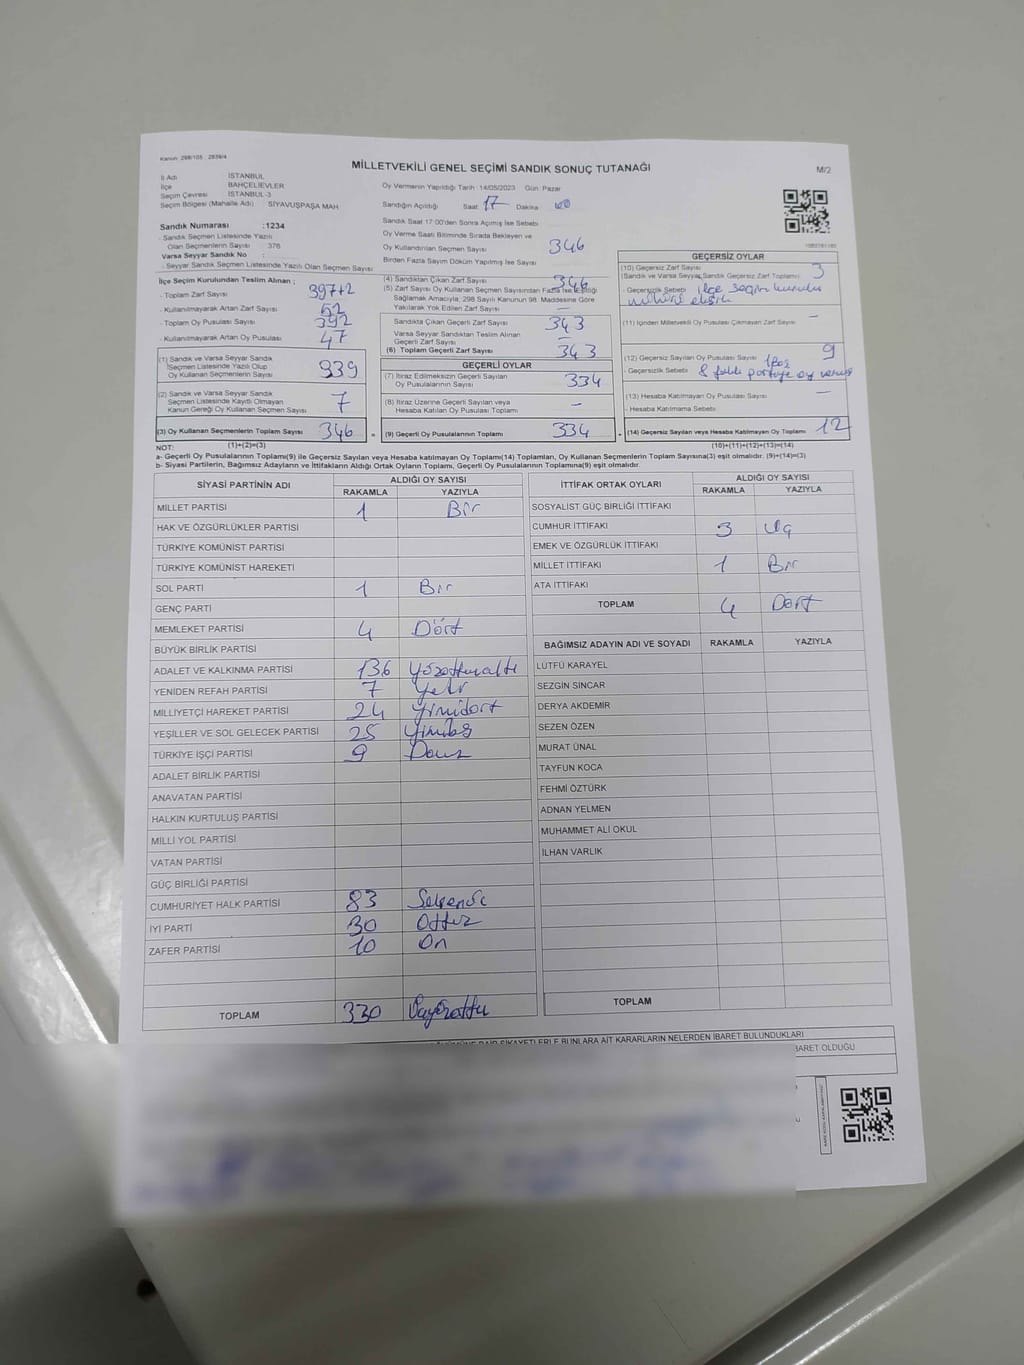 Kanun: 298/105 ; 2839/4
MİLLETVEKİLİ GENEL SEÇİMİ SANDIK SONUÇ TUTANAĞI
M/2
İl Adı İSTANBUL
İlçe BAHÇELİEVLER
Seçim Çevresi İSTANBUL-3
Seçim Bölgesi (Mahalle Adı) SİYAVUŞPAŞA MAH
Oy Vermenin Yapıldığı Tarih : 14/05/2023 Gün: Pazar
Sandığın Açıldığı Saat 17 Dakika 00
Sandık Numarası :1234
- Sandık Seçmen Listesinde Yazılı
Olan Seçmenlerin Sayısı 376
Varsa Seyyar Sandık No :
- Seyyar Sandık Seçmen Listesinde Yazılı Olan Seçmen Sayısı
Sandık Saat 17:00'den Sonra Açılmış İse Sebebi
Oy Verme Saati Bitiminde Sırada Bekleyen ve
Oy Kullandırılan Seçmen Sayısı 346
Birden Fazla Sayım Döküm Yapılmış İse Sayısı
İlçe Seçim Kurulundan Teslim Alınan ;
- Toplam Zarf Sayısı 397+2
- Kullanılmayarak Artan Zarf Sayısı 52
- Toplam Oy Pusulası Sayısı 392
- Kullanılmayarak Artan Oy Pusulası 47
(1) Sandık ve Varsa Seyyar Sandık
Seçmen Listesinde Yazılı Olup
Oy Kullanan Seçmenlerin Sayısı 339
(2) Sandık ve Varsa Seyyar Sandık
Seçmen Listesinde Kayıtlı Olmayan
Kanun Gereği Oy Kullanan Seçmen Sayısı 7
(3) Oy Kullanan Seçmenlerin Toplam Sayısı 346
(4) Sandıktan Çıkan Zarf Sayısı 346
(5) Zarf Sayısı Oy Kullanan Seçmen Sayısından Fazla İse Eşitliği
Sağlamak Amacıyla, 298 Sayılı Kanunun 98. Maddesine Göre
Yakılarak Yok Edilen Zarf Sayısı –
Sandıkta Çıkan Geçerli Zarf Sayısı 343
Varsa Seyyar Sandıktan Teslim Alınan
Geçerli Zarf Sayısı –
(6) Toplam Geçerli Zarf Sayısı 343
GEÇERLİ OYLAR
(7) İtiraz Edilmeksizin Geçerli Sayılan
Oy Pusulalarının Sayısı 334
(8) İtiraz Üzerine Geçerli Sayılan veya
Hesaba Katılan Oy Pusulası Toplamı –
(9) Geçerli Oy Pusulalarının Toplamı 334
GEÇERSİZ OYLAR
(10) Geçersiz Zarf Sayısı
(Sandık ve Varsa Seyyar Sandık Geçersiz Zarf Toplamı) 3
- Geçersizlik Sebebi ilçe seçim kurulu
mührü eksik
(11) İçinden Milletvekili Oy Pusulası Çıkmayan Zarf Sayısı –
(12) Geçersiz Sayılan Oy Pusulası Sayısı 1 boş 9
- Geçersizlik Sebebi 8 farklı partiye oy vermiş
(13) Hesaba Katılmayan Oy Pusulası Sayısı –
- Hesaba Katılmama Sebebi
(14) Geçersiz Sayılan veya Hesaba Katılmayan Oy Toplamı 12
NOT: (1)+(2)=(3) (10)+(11)+(12)+(13)=(14)
a- Geçerli Oy Pusulalarının Toplamı(9) ile Geçersiz Sayılan veya Hesaba katılmayan Oy Toplamı(14) Toplamları, Oy Kullanan Seçmenlerin Toplam Sayısına(3) eşit olmalıdır. (9)+(14)=(3)
b- Siyasi Partilerin, Bağımsız Adayların ve İttifakların Aldığı Ortak Oyların Toplamı, Geçerli Oy Pusulalarının Toplamına(9) eşit olmalıdır.
SİYASİ PARTİNİN ADI ALDIĞI OY SAYISI
RAKAMLA YAZIYLA
MİLLET PARTİSİ 1 Bir
HAK VE ÖZGÜRLÜKLER PARTİSİ
TÜRKİYE KOMÜNİST PARTİSİ
TÜRKİYE KOMÜNİST HAREKETİ
SOL PARTİ 1 Bir
GENÇ PARTİ
MEMLEKET PARTİSİ 4 Dört
BÜYÜK BİRLİK PARTİSİ
ADALET VE KALKINMA PARTİSİ 136 Yüzotuzaltı
YENİDEN REFAH PARTİSİ 7 Yedi
MİLLİYETÇİ HAREKET PARTİSİ 24 Yirmidört
YEŞİLLER VE SOL GELECEK PARTİSİ 25 Yirmibeş
TÜRKİYE İŞÇİ PARTİSİ 9 Dokuz
ADALET BİRLİK PARTİSİ
ANAVATAN PARTİSİ
HALKIN KURTULUŞ PARTİSİ
MİLLİ YOL PARTİSİ
VATAN PARTİSİ
GÜÇ BİRLİĞİ PARTİSİ
CUMHURİYET HALK PARTİSİ 83 Seksenüç
İYİ PARTİ 30 Ottuz
ZAFER PARTİSİ 10 On
TOPLAM 330
İTTİFAK ORTAK OYLARI ALDIĞI OY SAYISI
RAKAMLA YAZIYLA
SOSYALİST GÜÇ BİRLİĞİ İTTİFAKI
CUMHUR İTTİFAKI 3 Üç
EMEK VE ÖZGÜRLÜK İTTİFAKI
MİLLET İTTİFAKI 1 Bir
ATA İTTİFAKI
TOPLAM 4 Dört
BAĞIMSIZ ADAYIN ADI VE SOYADI RAKAMLA YAZIYLA
LÜTFÜ KARAYEL
SEZGİN SİNCAR
DERYA AKDEMİR
SEZEN ÖZEN
MURAT ÜNAL
TAYFUN KOCA
FEHMİ ÖZTÜRK
ADNAN YELMEN
MUHAMMET ALİ OKUL
İLHAN VARLIK
TOPLAM
DAİR ŞİKAYETLERLE BUNLARA AİT KARARLARIN NELERDEN İBARET BULUNDUKLARI
İBARET OLDUĞU